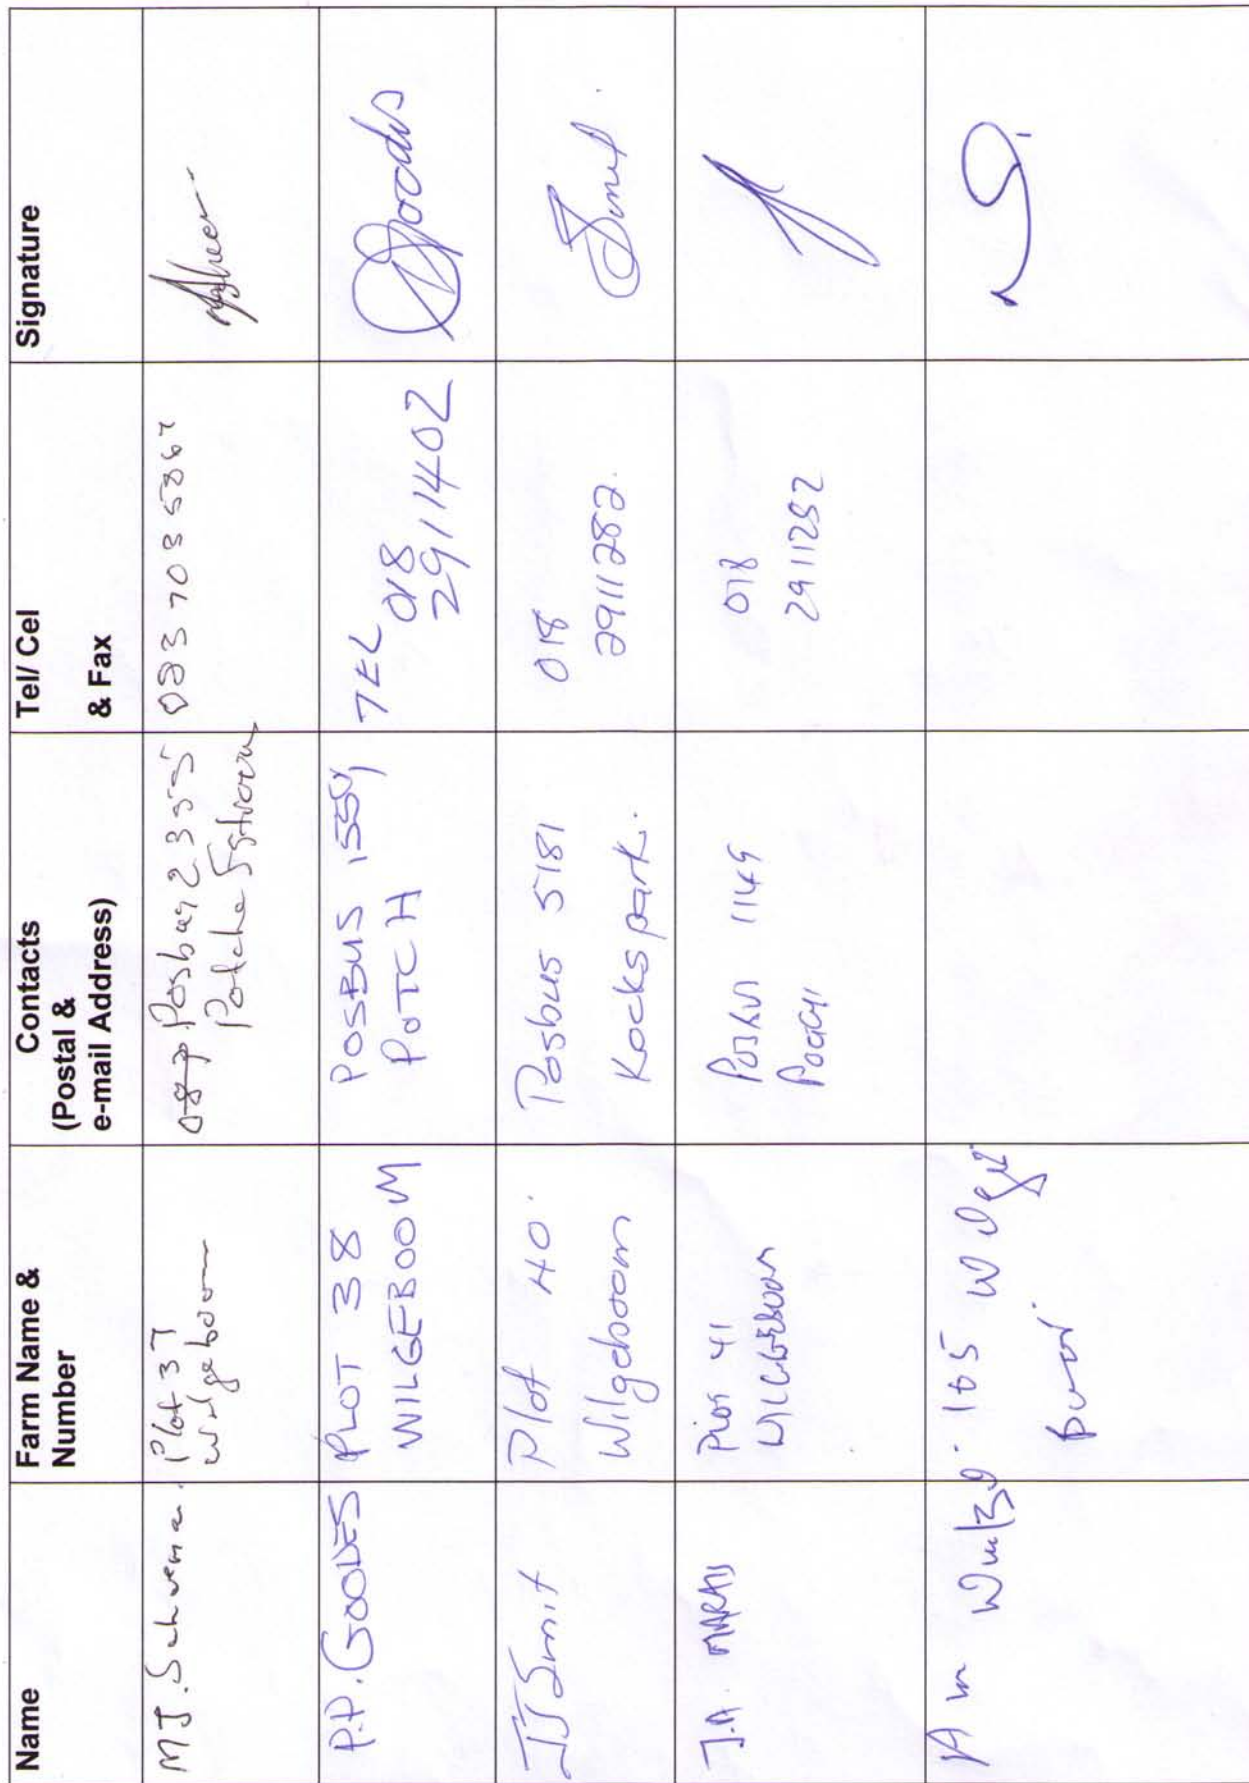 Name
Farm Name &
Number
Contacts
(Postal &
e-mail Address)
Tel/ Cel
& Fax
Signature
M J. Schoeman.
Plot 37
Wilgeboom
Posbus 2355
Potchefstroom
083 703 5867
P.P. GOODES
PLOT 38
WILGEBOOM
POSBUS 1554
POTCH
TEL
018
2911402
JJ Smit
Plot 40.
Wilgeboom
Posbus 5181
Kockspark.
018
2911282.
J.A. MARAIS
PLOT 41
WILGEBOOM
POSBUS 1149
018
2911252
A M
165